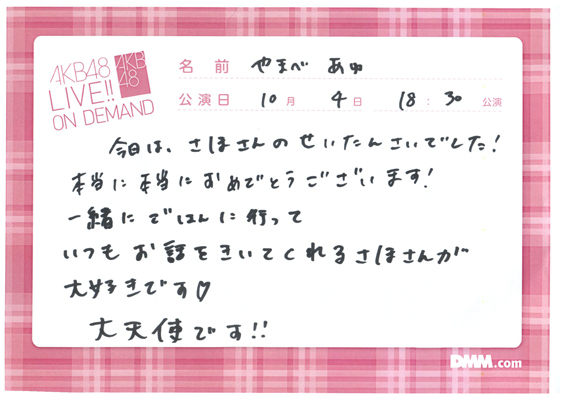 AKB48
LIVE!!
ON DEMAND
AKB
48
名前 やまべ あゆ
公演日 10月 4日 18:30 公演
今日は、さほさんのせいたんさいでした!
本当に本当におめでとうございます!
一緒にごはんに行って
いつもお話をきいてくれるさほさんが
大好きです♡
大天使です!!
DMM.com